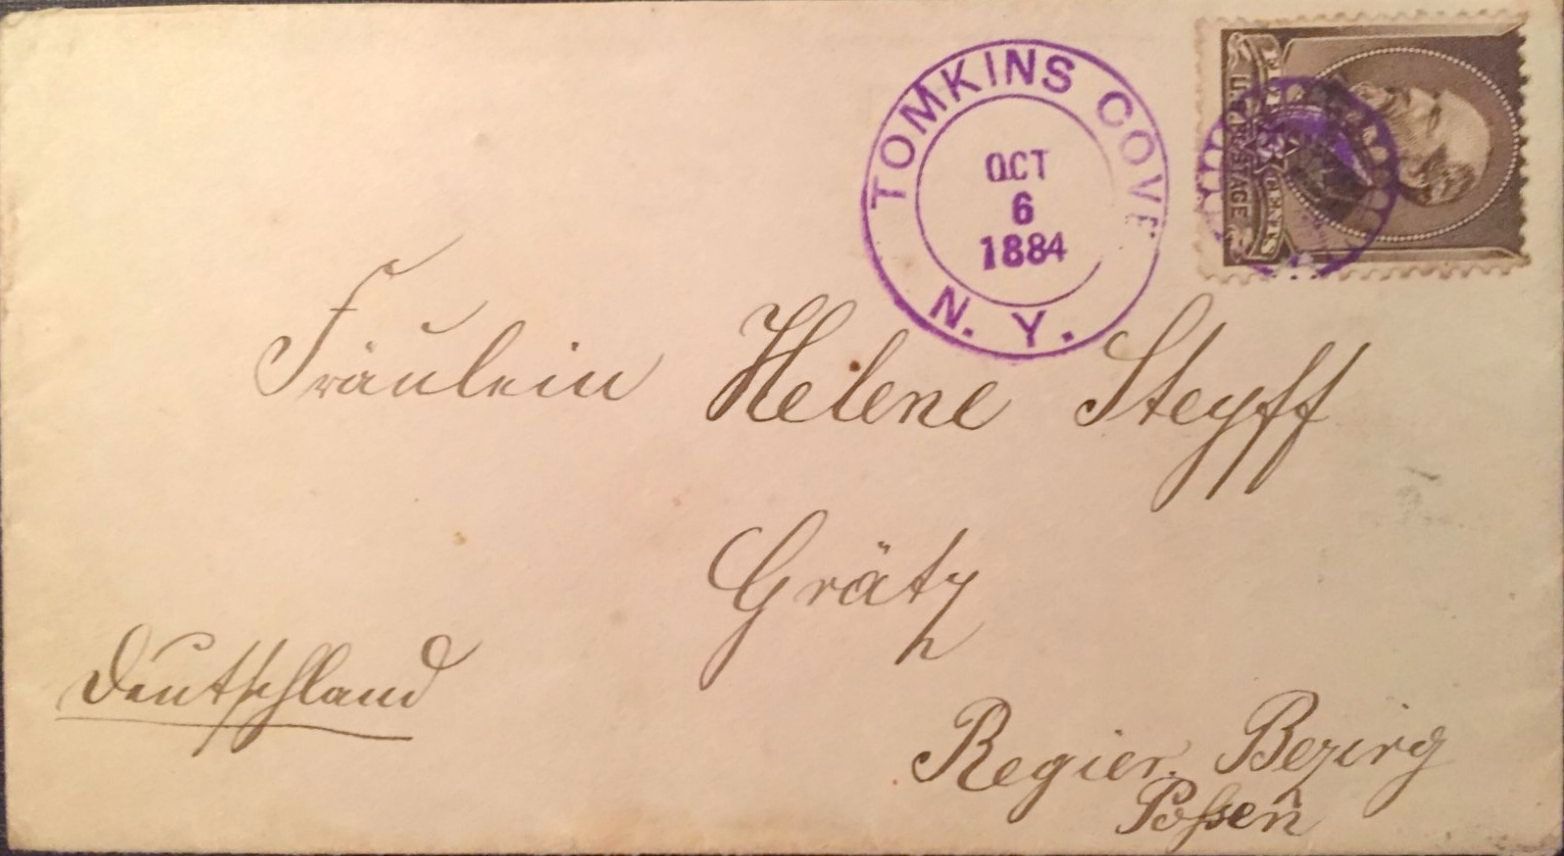 TOMKINS COVE
OCT
6
1884
N. Y.
U.S. POSTAGE
FIVE CENTS
Fräulein Helene Steyff
Grätz
Deutschland
Regier. Bezirg
Possen